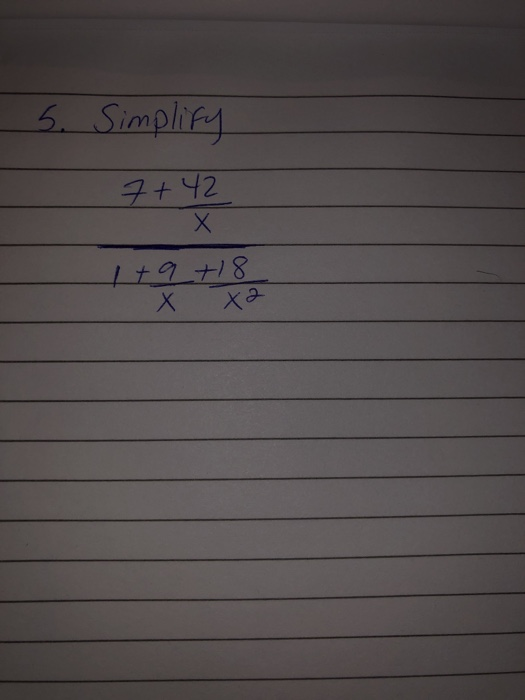 5. Simplify
7 + 42
x
1 + 9 + 18
x x2